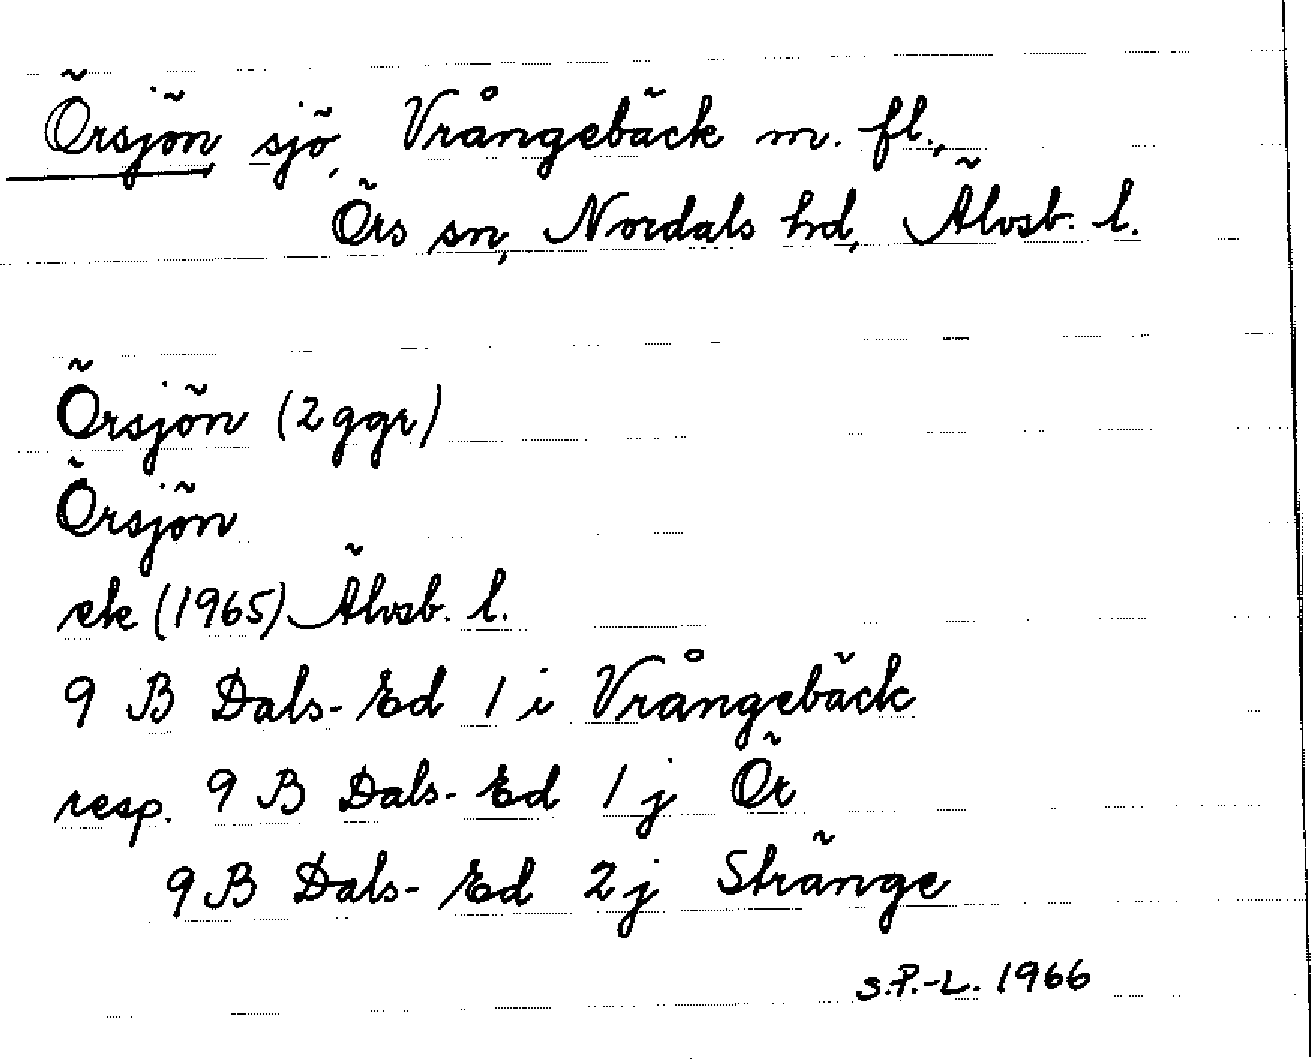 Örsjön sjö, Vrångebäck m. fl.,
Örs sn, Nordals hd, Älvsb. l.
Örsjön (2 ggr)
Örsjön
ek (1965) Älvsb. l.
9 B Dals-Ed 1 i Vrångebäck
resp. 9 B Dals-Ed 1 j Ör
9 B Dals-Ed 2 j Stränge
S.P.-L. 1966